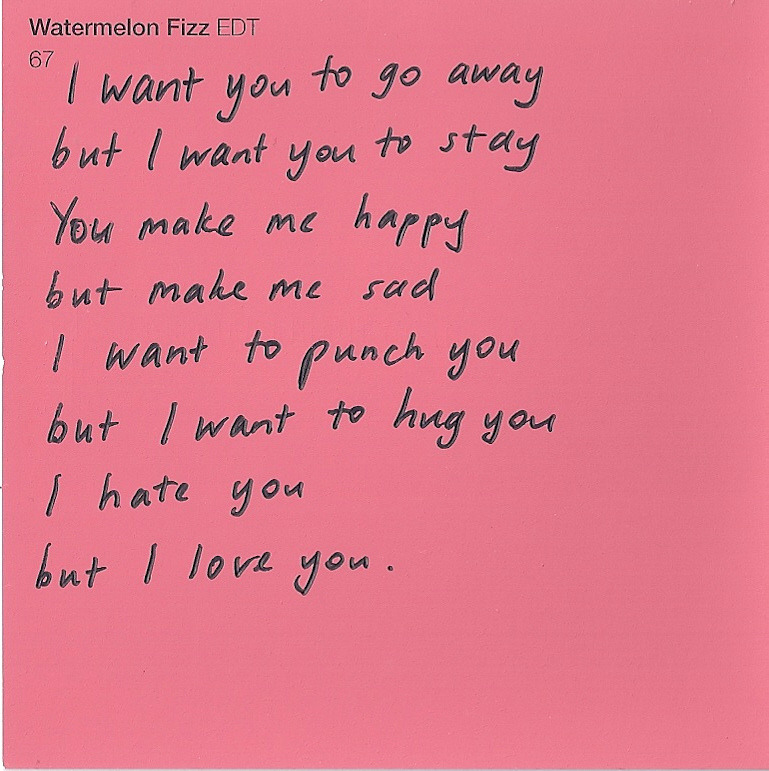 Watermelon Fizz EDT
67
I want you to go away
but I want you to stay
You make me happy
but make me sad
I want to punch you
but I want to hug you
I hate you
but I love you.